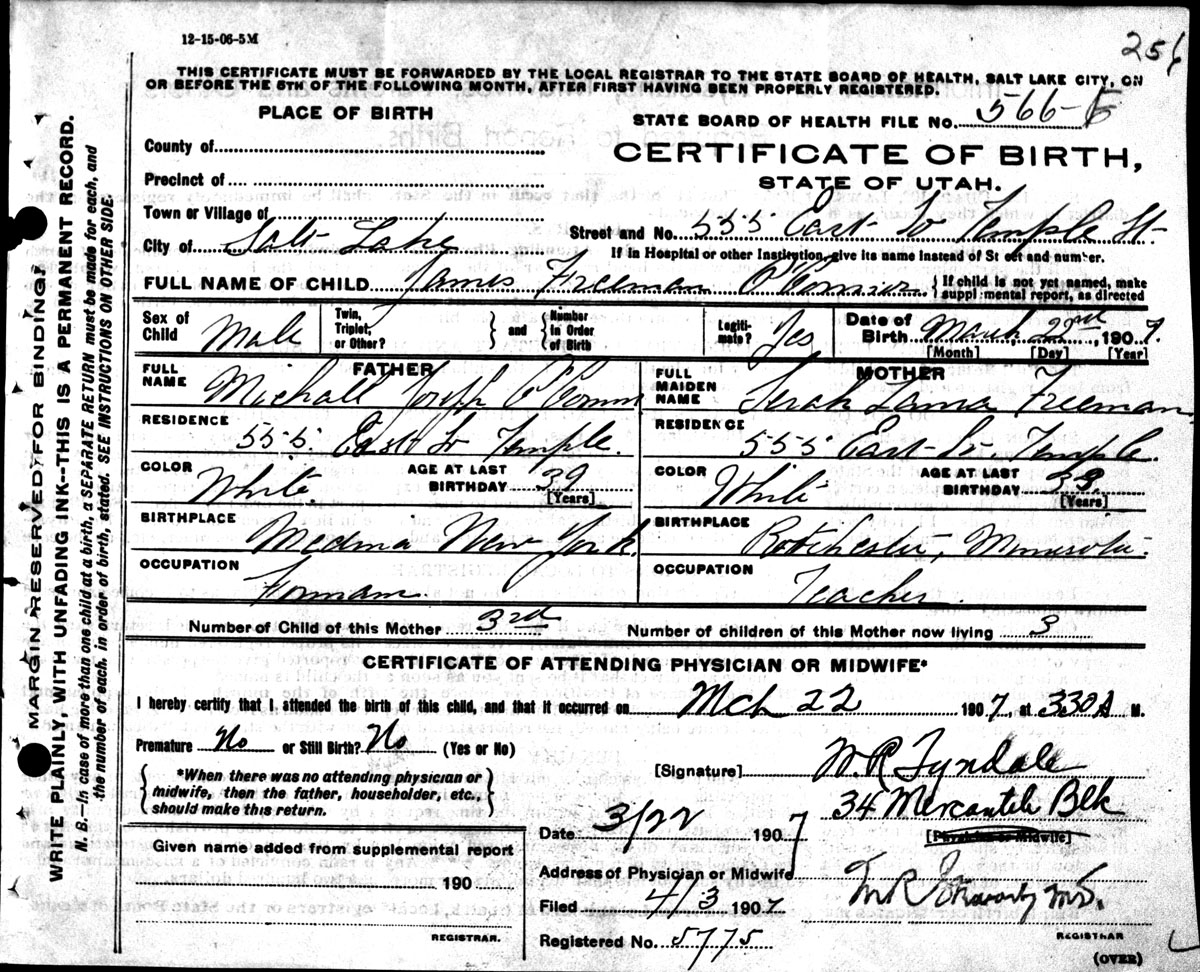 12-15-06-5M
256
THIS CERTIFICATE MUST BE FORWARDED BY THE LOCAL REGISTRAR TO THE STATE BOARD OF HEALTH, SALT LAKE CITY, ON
OR BEFORE THE 5TH OF THE FOLLOWING MONTH, AFTER FIRST HAVING BEEN PROPERLY REGISTERED.
PLACE OF BIRTH
STATE BOARD OF HEALTH FILE NO. 566-
County of
CERTIFICATE OF BIRTH,
Precinct of
STATE OF UTAH.
Town or Village of
City of Salt Lake
Street and No. 555 East So Temple St
If in Hospital or other Institution, give its name instead of Street and number.
FULL NAME OF CHILD James Freeman O'Connor { If child is not yet named, make
supplemental report, as directed
Sex of Child Male
Twin, Triplet, or Other? } and { Number in Order of Birth
Legitimate? Yes
Date of Birth March 22nd, 1907
[Month] [Day] [Year]
FATHER
FULL NAME Michall Joseph O'Conn
MOTHER
FULL MAIDEN NAME Serah Lama Freeman
RESIDENCE 555 East So Temple.
RESIDENCE 555 East So Temple.
COLOR White. AGE AT LAST BIRTHDAY 39 [Years]
COLOR White AGE AT LAST BIRTHDAY 33 [Years]
BIRTHPLACE Medina New York.
BIRTHPLACE Rotchester, Minnesota.
OCCUPATION Formam.
OCCUPATION Teacher.
Number of Child of this Mother 3rd
Number of children of this Mother now living 3
CERTIFICATE OF ATTENDING PHYSICIAN OR MIDWIFE*
I hereby certify that I attended the birth of this child, and that it occurred on Mch 22 1907, at 330 A M.
Premature No or Still Birth? No (Yes or No)
{ *When there was no attending physician or
midwife, then the father, householder, etc.,
should make this return. }
[Signature] W.R. Tyndale
34 Mercantile Blk
Date 3/22 1907
[Physician or Midwife]
Given name added from supplemental report
190
Address of Physician or Midwife
Filed 4/3 1907
M.D.
REGISTRAR.
Registered No. 5775
REGISTRAR
(OVER)
MARGIN RESERVED FOR BINDING!
WRITE PLAINLY, WITH UNFADING INK--THIS IS A PERMANENT RECORD.
N. B.—In case of more than one child at a birth, a SEPARATE RETURN must be made for each, and
the number of each, in order of birth, stated. SEE INSTRUCTIONS ON OTHER SIDE.